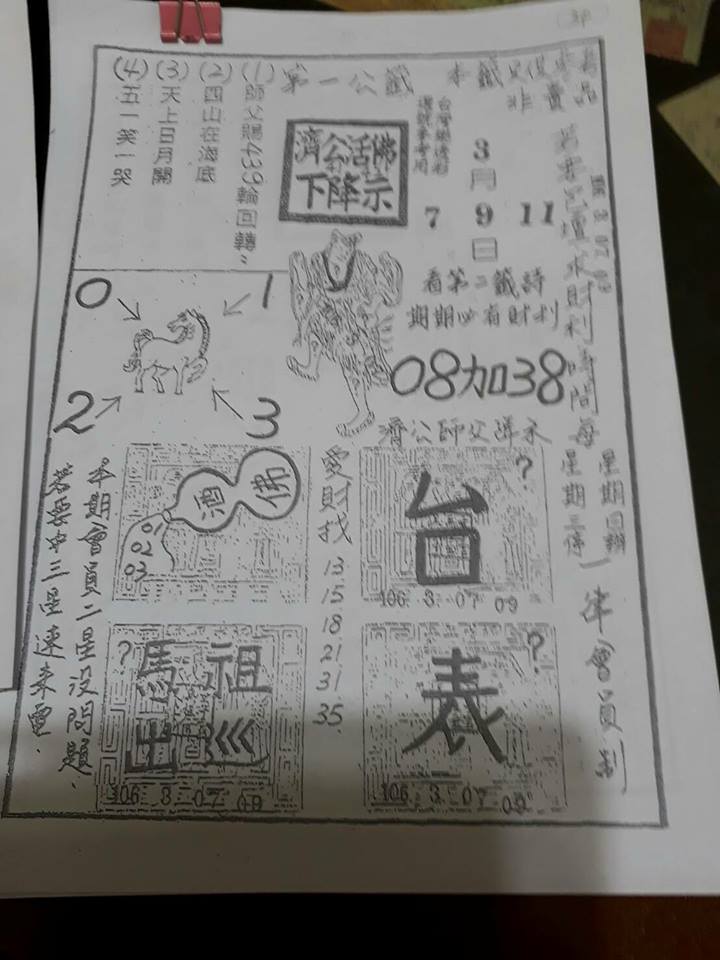 第一公籤
本籤只供參考
非賣品
台灣樂透彩
選號參考用
濟公活佛
下降示
3月
7 9 11
日
看第二籤詩
期期必有財利
08加38
(1)師父賜439輪回轉
(2)四山在海底
(3)天上日月開
(4)五一笑一哭
0
1
2
3
濟公師父降示
求財利時間每
星期回期
星期三停
一律會員制
佛
酒
01
02
03
愛財找
13
15
18
21
31
35
台
?
106 3 07 09
?
馬祖
出巡
106 3 07 09
表
?
106 3 07 09
本期會員二星沒問題